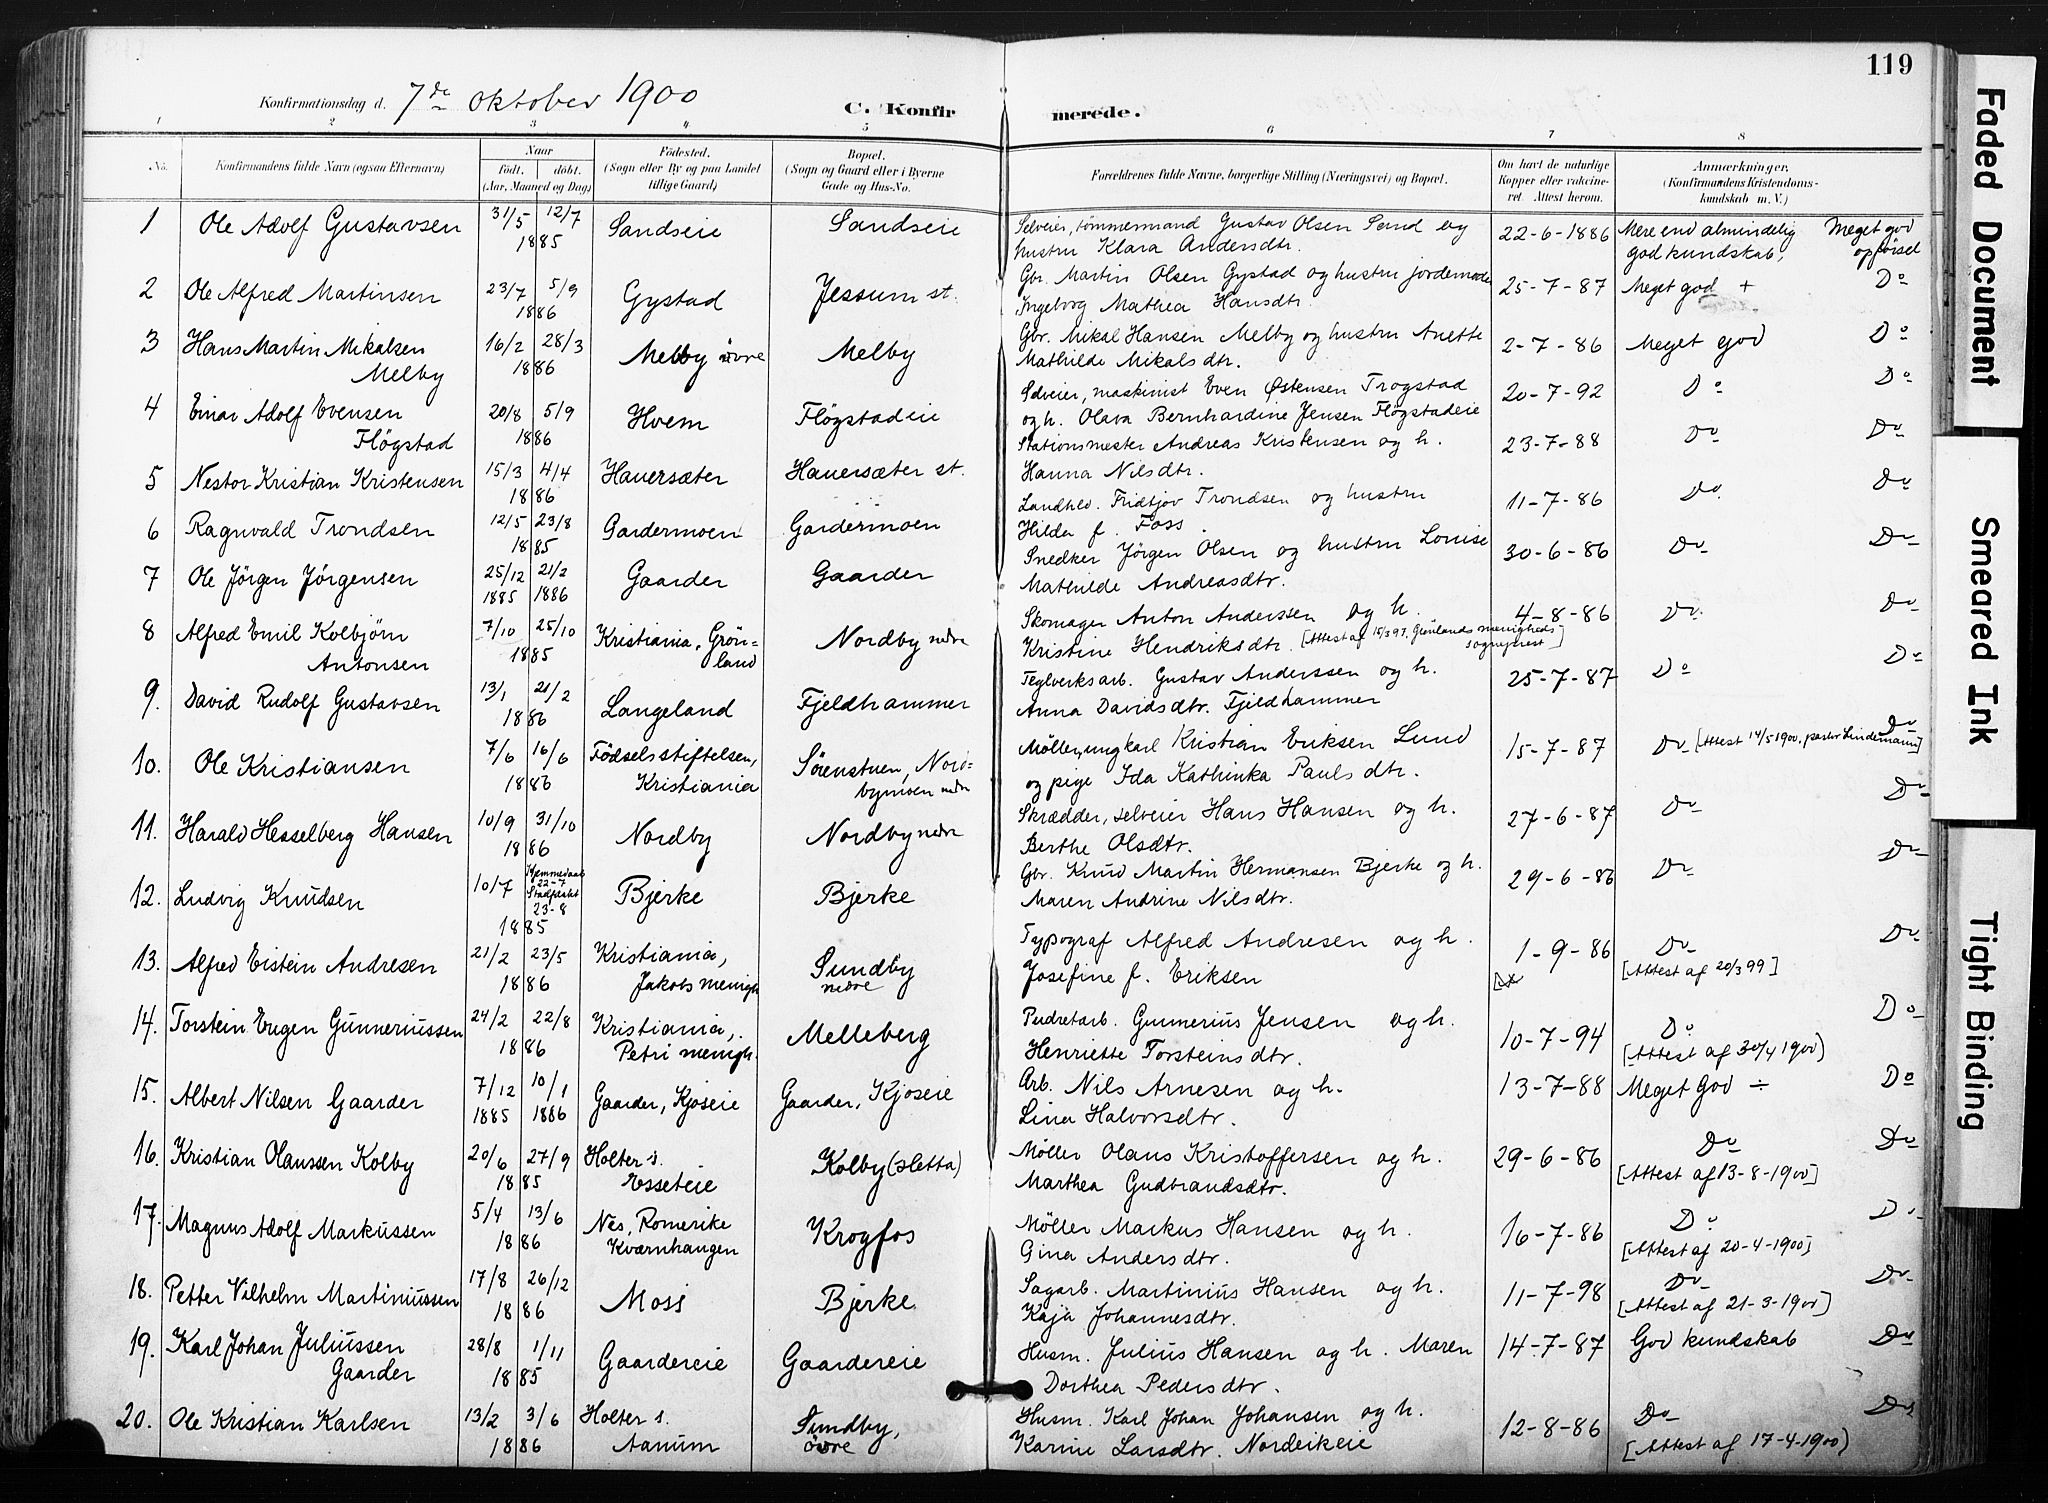 119
Konfirmationsdag d. 7de oktober 1900
C. Konfirmerede.
1 2 3 4 5 6 7 8
No. Konfirmandens fulde Navn (ogsaa Efternavn) Naar født. døbt. (Aar, Maaned og Dag) Fødested. (Sogn eller By og paa Landet tillige Gaard) Bopæl. (Sogn og Gaard eller i Byerne Gade og Hus-No. Forældrenes fulde Navne, borgerlige Stilling (Næringsvei) og Bopæl. Om havt de naturlige Kopper eller vakcineret. Attest herom. Anmærkninger. (Konfirmandens Kristendomskundskab m. V.)
1 Ole Adolf Gustavsen 31/5 12/7 1885 Sandseie Sandseie Selveier, tømmermand Gustav Olsen Sand og hustru Klara Andersdtr. 22-6-1886 Mere end almindelig god kundskab. Meget god opførsel
2 Ole Alfred Martinsen 23/7 5/9 1886 Gystad Jessum st. Gbr. Martin Olsen Gystad og hustru jordemoder Ingeborg Mathea Hansdtr. 25-7-87 Meget god + Do
3 Hans Martin Mikalsen Melby 16/2 28/3 1886 Melby øvre Melby Gbr. Mikal Hansen Melby og hustru Anette Mathilde Mikalsdtr. 2-7-86 Meget god Do
4 Einar Adolf Evensen Fløgstad 20/8 5/9 1886 Hvem Fløgstadeie Selveier, maskinist Even Østensen Trogstad og h. Olava Bernhardine Jensen Fløgstadeie 20-7-92 Do Do
5 Nestor Kristian Kristensen 15/3 4/4 1886 Hauersæter Hauersæter st. Stationsmester Andreas Kristensen og h. Hanna Nilsdtr. 23-7-88 Do Do
6 Ragnvald Trondsen 12/5 23/8 1885 Gardermoen Gardermoen Landhdl. Fridtjov Trondsen og hustru Hilda f. Foss. 11-7-86 Do Do
7 Ole Jörgen Jörgensen 25/12 1885 21/2 1886 Gaarder Gaarder Snedker Jörgen Olsen og hustru Louise Mathilde Andreasdtr. 30-6-86 Do Do
8 Alfred Emil Kolbjørn Antonsen 7/10 25/10 1885 Kristiania, Grönland Nordby nedre Skomager Anton Anderssen og h. Kristine Hendriksdtr. [Attest af 15/3 97. Grønlands menigheds sogneprest] 4-8-86 Do Do
9. David Rudolf Gustavsen 13/1 21/2 1886 Langeland Fjeldhammer Teglverksarb. Gustav Anderssen og h. Anna Davidsdtr. Fjeldhammer 25-7-87 Do Do
10. Ole Kristiansen 7/6 16/6 1886 Födselsstiftelsen, Kristiania Sörenstuen, Nordbymoen nedre Møller, ungkarl Kristian Eriksen Lund og pige Ida Kathinka Paulsdtr. 15-7-87 Do [Attest 14/5 1900, pastor Lindemann] Do
11. Harald Hesselberg Hansen 10/9 31/10 1886 Nordby Nordby nedre Skrædder, selveier Hans Hansen og h. Berthe Olsdtr. 27-6-87 Do Do
12. Ludvig Knudsen 10/7 Hjemmedaab 22-7 Stadfestet 23-8 1885 Bjerke Bjerke Gbr. Knud Martin Hermansen Bjerke og h. Maren Andrine Nilsdtr. 29-6-86 Do Do
13. Alfred Eistein Andresen 21/2 23/5 1886 Kristiania, Jakobs menigh Sundby nedre Typograf Alfred Andresen og h. Josefine f. Eriksen 1-9-86 Do [Attest af 20/3 99] Do
14. Torstein Eugen Gunneriussen 24/2 22/8 1886 Kristiania, Petri menigh. Melleberg Pudretarb. Gunnerius Jensen og h. Henriette Torsteinsdtr. 10-7-94 Do [Attest af 30/4 1900) Do
15. Albert Nilsen Gaarder 7/12 1885 10/1 1886 Gaarder, Kjoseie Gaarder, Kjoseie Arb. Nils Arnesen og h. Lina Halvorsdtr. 13-7-88 Meget God ÷ Do
16. Kristian Olaussen Kolby 20/6 27/9 1885 Holter s. Esseteie Kolby (sletta) Møller Olaus Kristoffersen og h. Marthea Gudbrandsdtr. 29-6-86 Do [Attest af 13-8-1900] Do
17. Magnus Adolf Markussen 5/4 13/6 1886 Nes, Romerike Kværnhaugen Krogfos Møller Markus Hansen og h. Gina Andersdtr. 16-7-86 Do [Attest af 20-4-1900] Do
18. Petter Vilhelm Martiniussen 17/8 26/12 1886 Moss Bjerke Sagarb. Martinius Hansen og h. Kaja Johannesdtr. 11-7-98 Do [Attest af 21-3-1900] Do
19. Karl Johan Juliussen Gaarder 28/8 1/11 1885 Gaardereie Gaardereie Husm. Julius Hansen og h. Maren Dorthea Pedersdtr. 14-7-87 God kundskab Do
20. Ole Kristian Karlsen 13/2 3/6 1886 Holter s. Aanum Sundby, øvre Husm. Karl Johan Johansen og h. Karine Larsdtr. Nordeikeie 12-8-86 Do [Attest af 17-4-1900) Do
Faded Document
Smeared Ink
Tight Binding